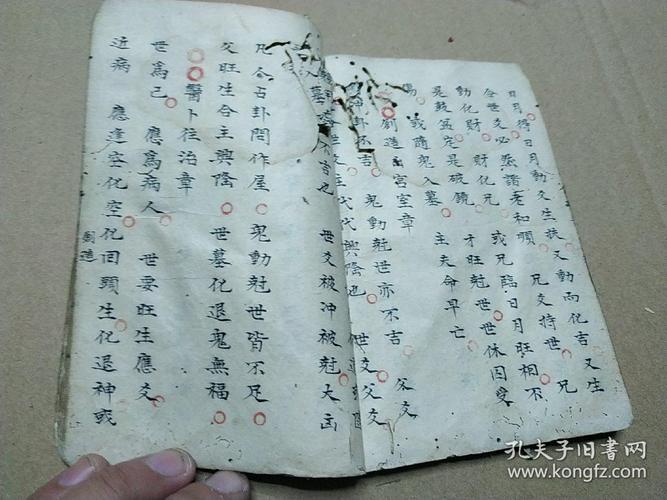 日月得日月動爻生扶　又動而化吉又生
合世爻必然諧老和順　兄爻持世　兄
動化財　財化兄　或兄臨日月旺相不
是鼓盆定是破鏡　才旺尅世世休囚受
傷　或隨鬼入墓　主夫命早亡
創造宮室章　父爻
不吉　鬼動尅世亦不吉　世爻父爻
代代興隆也
入墓　吉也　世爻被冲被尅大凶
凡合占卦問作屋　鬼動尅世皆不足
父旺生合主興隆　世墓化退鬼無福
醫卜往治章
世為己　應為病人　世要旺生應爻
近病　應逢空化空化回頭生化退神或
創造
孔夫子旧书网
www.kongfz.com